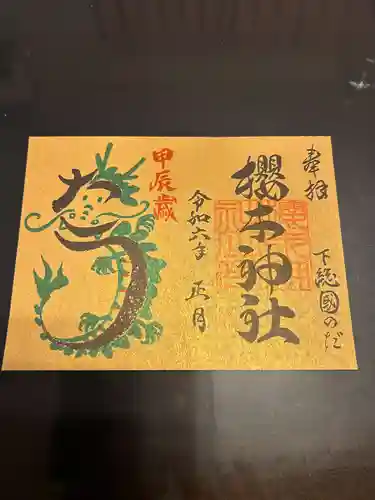 奉拝
下總國のだ
櫻木神社
令和六年 正月
甲辰歳